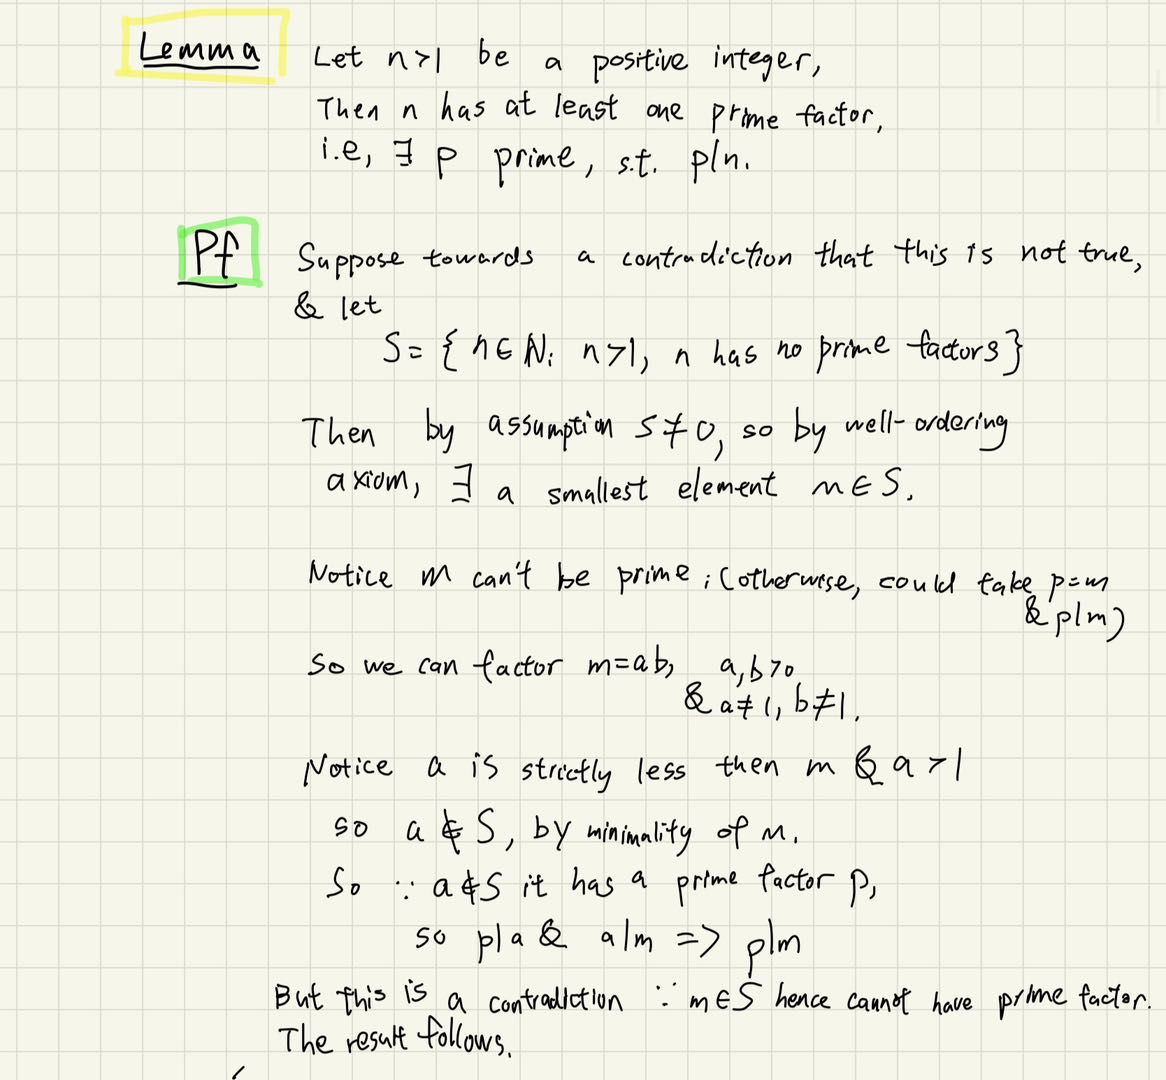 Lemma Let n>1 be a positive integer,
Then n has at least one prime factor,
i.e, ∃ p prime, s.t. p|n.
Pf Suppose towards a contradiction that this is not true,
& let
S= { n∈ℕ: n>1, n has no prime factors}
Then by assumption S≠0, so by well-ordering
axiom, ∃ a smallest element m∈S.
Notice m can't be prime; (otherwise, could take p=m
& p|m)
So we can factor m=ab, a,b>0
& a≠1, b≠1.
Notice a is strictly less then m & a>1
so a∉S, by minimality of m.
So ∵ a∉S it has a prime factor p,
so p|a & a|m => p|m
But this is a contradiction ∵ m∈S hence cannot have prime factor.
The result follows.